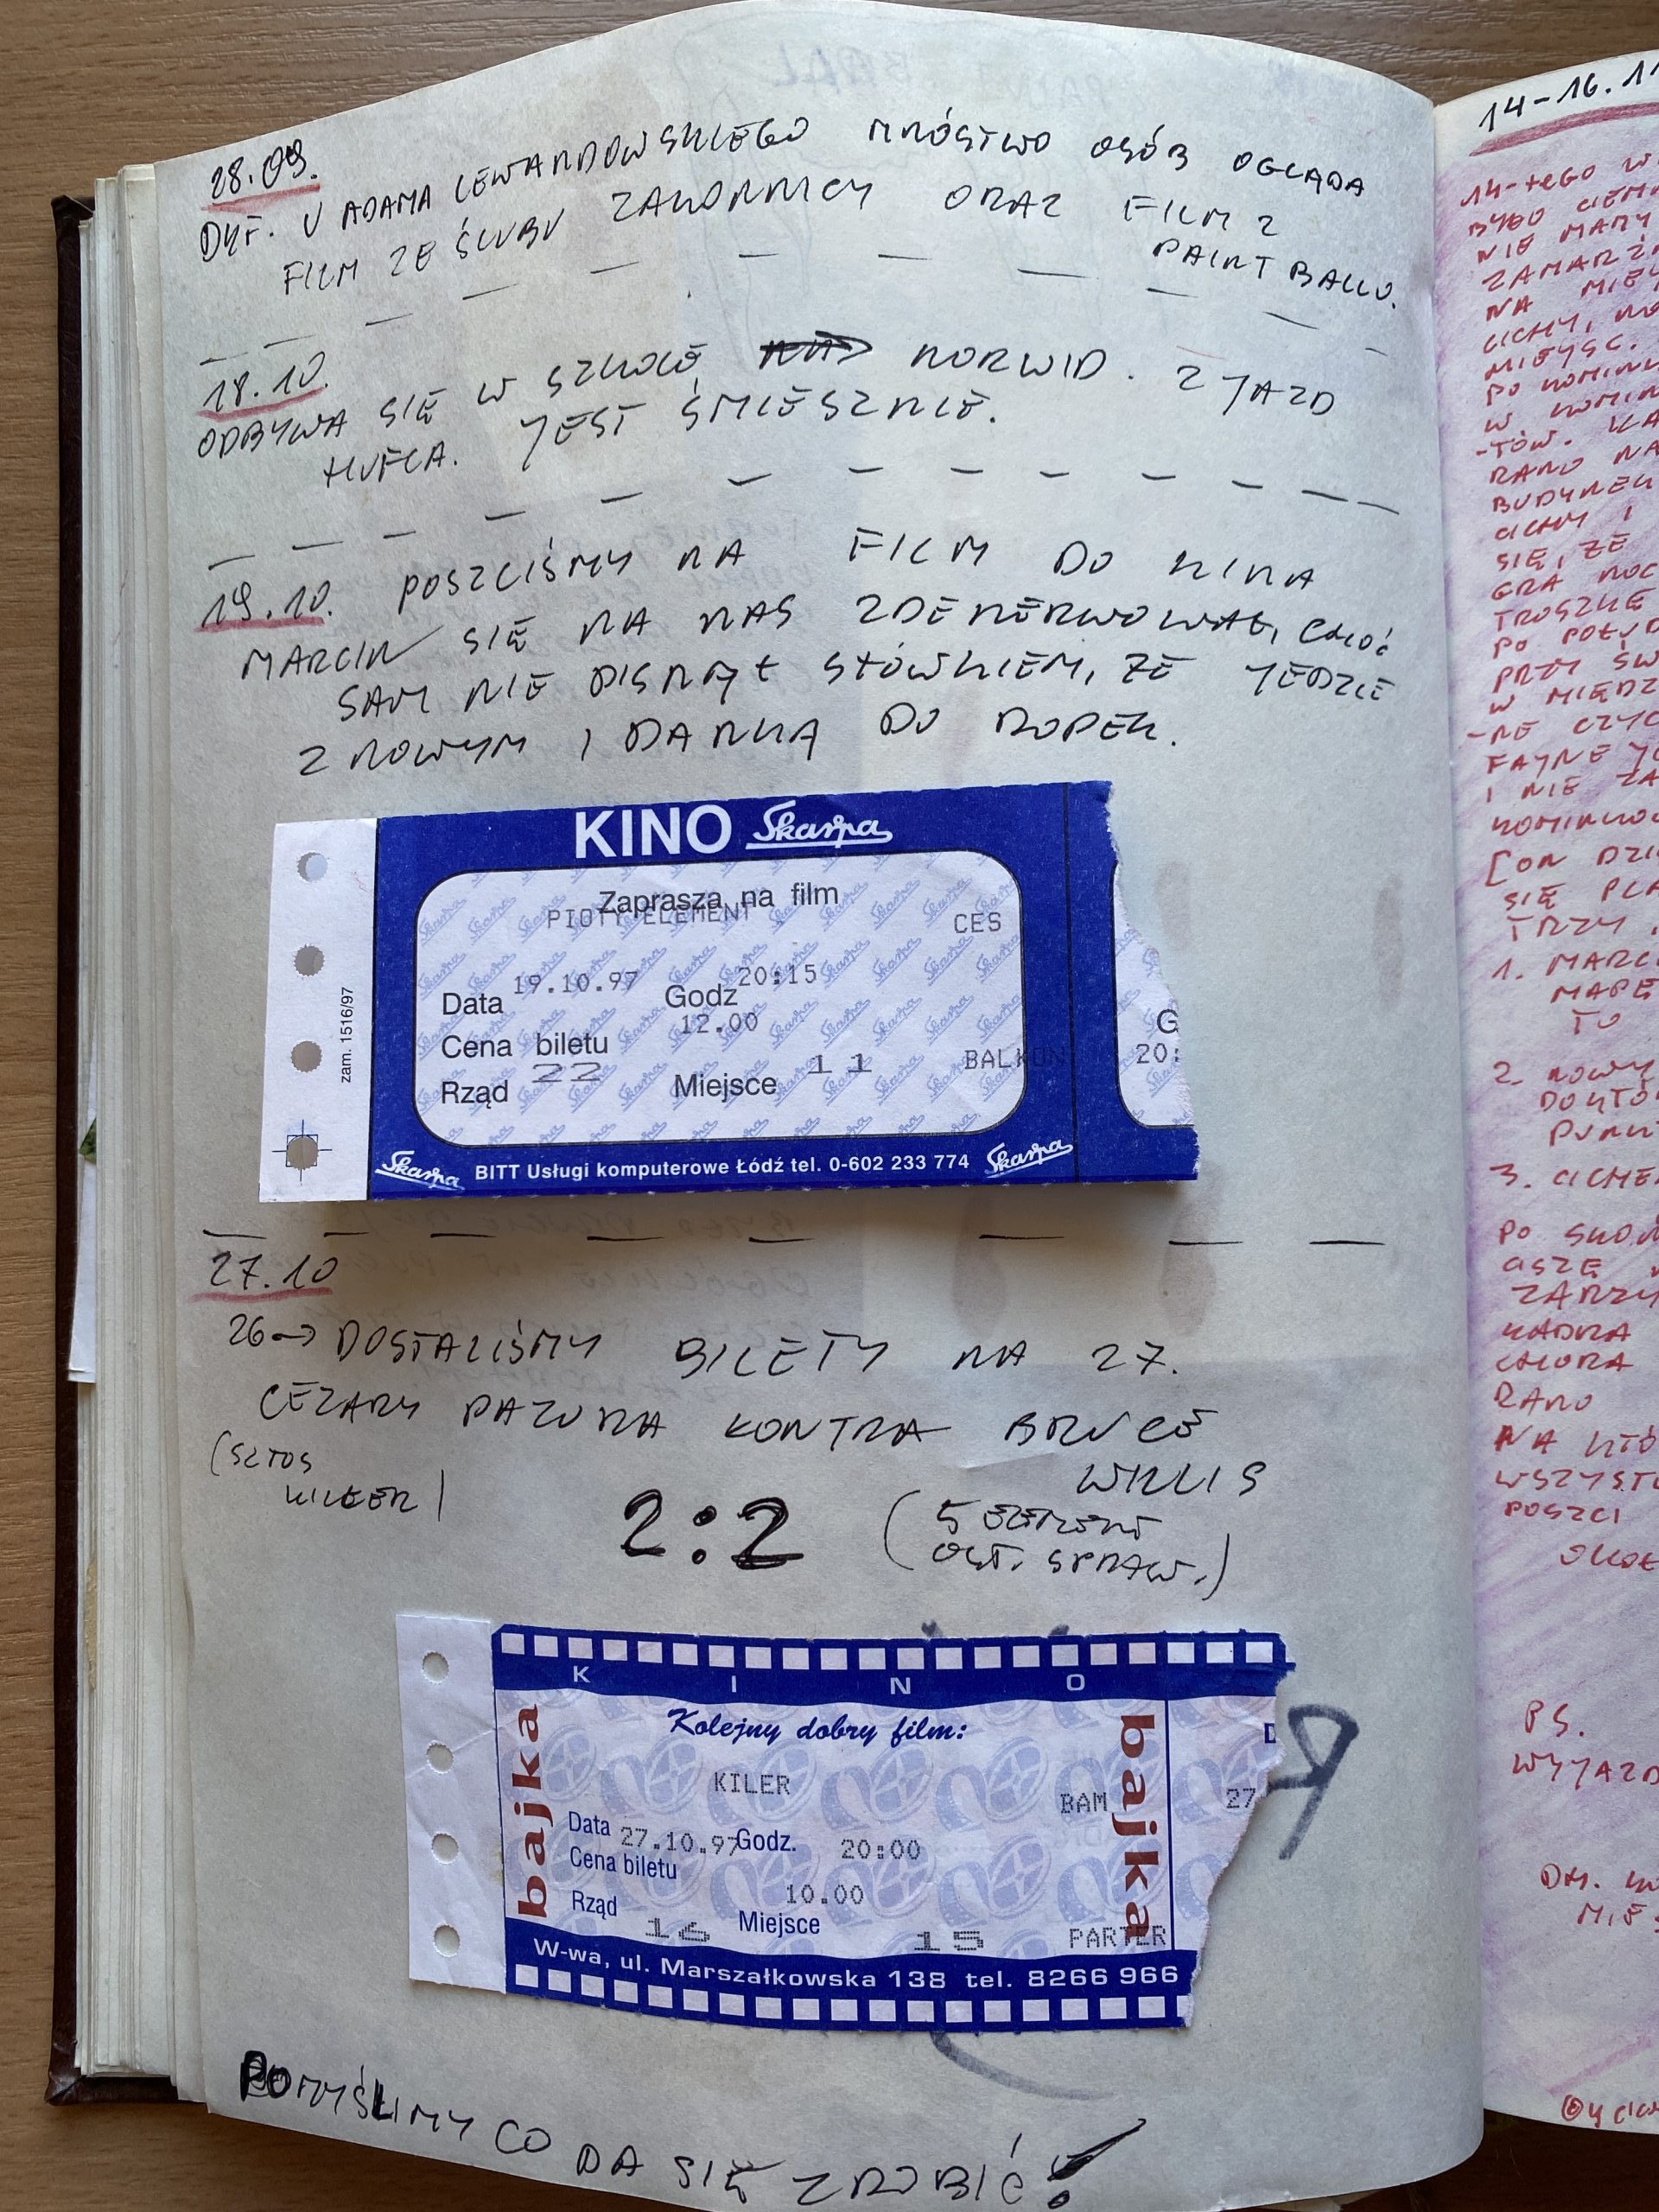 28.09.
DYF. U ADAMA LEWANDOWSKIEGO MNÓSTWO OSÓB OGLĄDA
FILM ZE ŚLUBU ZAKONNICY ORAZ FILM Z
PAINT BALLU.
18.10.
ODBYWA SIĘ W SZKOLE NORWID. ZJAZD
HUFCA. JEST ŚMIESZNIE.
19.10. POSZLIŚMY NA FILM DO KINA
MARCIN SIĘ NA NAS ZDENERWOWAŁ, CHOĆ
SAM NIE PISNĄŁ SŁÓWKIEM, ŻE JEDZIE
Z NOWYM I DANKĄ DO
KINO Skarpa
Zaprasza na film
PIĄTY ELEMENT
CES
Data 19.10.97 Godz 20:15
Cena biletu 12.00
Rząd 22 Miejsce 11 BALKON
G
20:
zam. 1516/97
Skarpa BITT Usługi komputerowe Łódź tel. 0-602 233 774 Skarpa
27.10
26→ DOSTALIŚMY BILETY NA 27.
CEZARY PAZURA KONTRA BRUCE
WILLIS
(SZTOS
KILLER)
2:2
(5 ELEMENT
OST. SPRAW.)
KINO
bajka
Kolejny dobry film:
bajka
KILER
BAM
27
Data 27.10.97 Godz. 20:00
Cena biletu
10.00
Rząd 16 Miejsce 15 PARTER
W-wa, ul. Marszałkowska 138 tel. 8266 966
POMYŚLIMY CO DA SIĘ ZROBIĆ!
14-16.11
14-TEGO W
BYŁO CIEM
NIE MAMY
NA MIEJ
CICHY,
MIEJSC.
PO KOMINK
W KOMIN
-TÓW.
RANO NA
BUDYNEK
CICHY I
SIĘ, ŻE
GRA NOC
TROSZKĘ
PO POŁUD
PRZY ŚW
W MIĘDZ
-NE CZYC
FAJNE
I NIE ZA
KOMINKO
[ON DZI
SIĘ PLA
TRZY
1. MARC
MAPĘ
TO
2. NOWY
DOKTÓ
PUNKT
3. CICHE
CISZĘ
ZARZY
KADRA
CHORA
RANO
NA KTÓ
WSZYST
POSZLI
PS.
WYJAZD